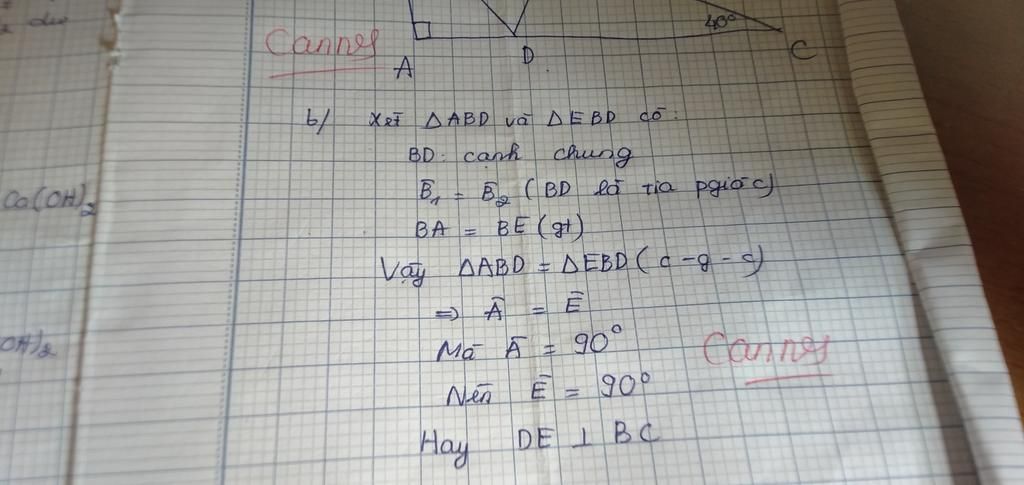 40°
Cannes
A
D
C
b/ Xét ΔABD và ΔEBD có:
BD: cạnh chung
B̂₁ = B̂₂ (BD là tia pgiác)
BA = BE (gt)
Vậy ΔABD = ΔEBD (c-g-c)
⇒ Â = Ê
Mà Â = 90°
Nên Ê = 90°
Cannes
Hay DE ⊥ BC
Ca(OH)₂
OH)₂